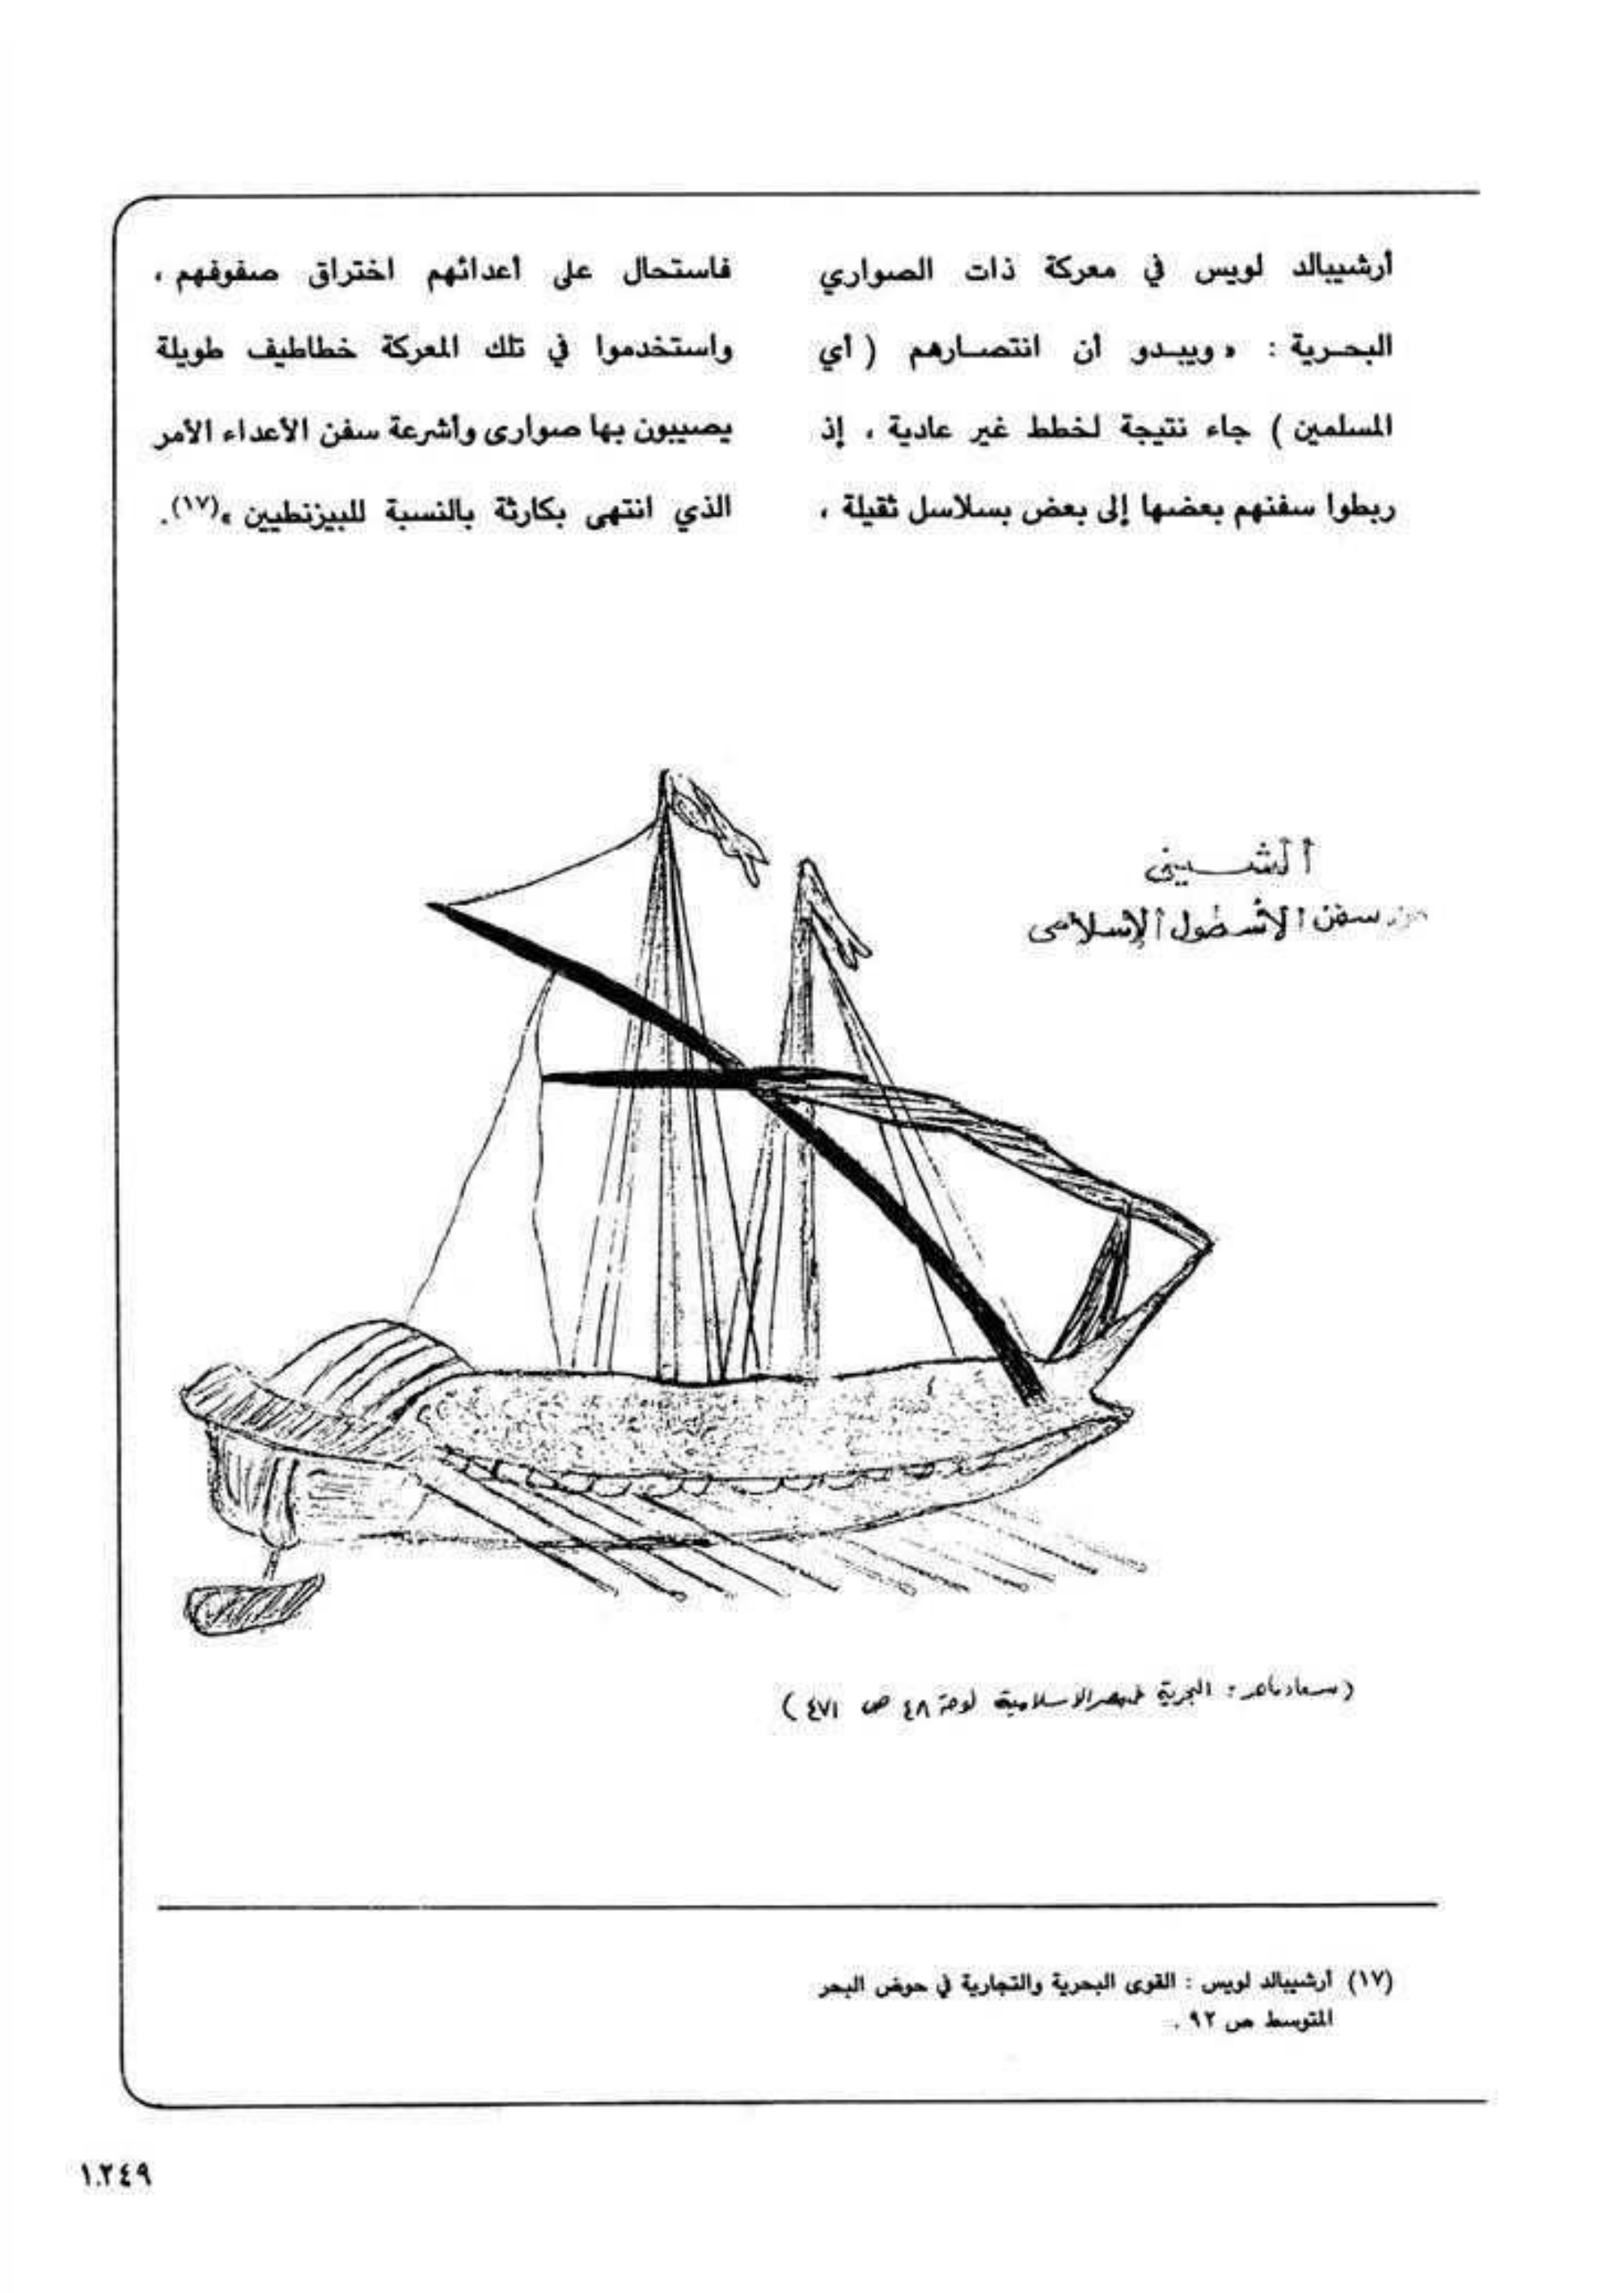 أرشيبالد لويس في معركة ذات الصواري
البحـرية : « ويبـدو أن انتصـارهم ( أي
المسلمين ) جاء نتيجة لخطط غير عادية ، إذ
ربطوا سفنهم بعضها إلى بعض بسلاسل ثقيلة ،
فاستحال على أعدائهم اختراق صفوفهم ،
واستخدموا في تلك المعركة خطاطيف طويلة
يصيبون بها صوارى وأشرعة سفن الأعداء الأمر
الذي انتهى بكارثة بالنسبة للبيزنطيين »(١٧).
الشـــينى
من سفن الأسطول الإسلامى
(سعاد ماهر : البحرية فى مصر الإسلامية لوحة ٤٨ ص ٤٧١)
(١٧) أرشيبالد لويس : القوى البحرية والتجارية في حوض البحر
المتوسط ص ٩٢ .
١.٢٤٩